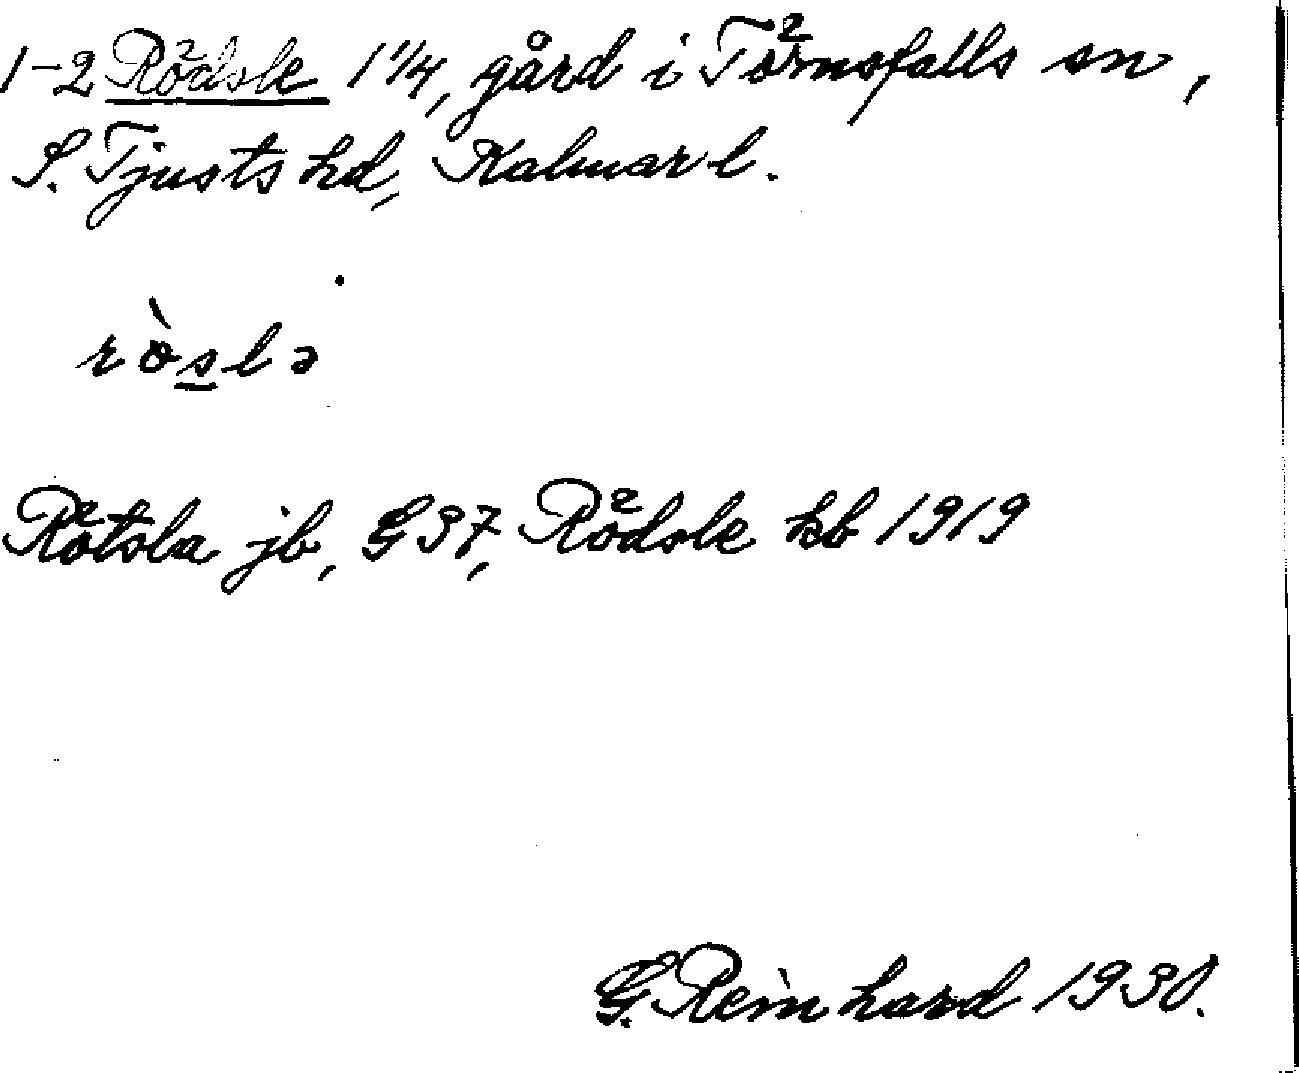 1-2 Rödsle 1 1/4, gård i Törnsfalls sn,
S. Tjusts hd, Kalmar l.
rö̀slə
Rötsla jb, G 37, Rödsle kb 1919
G. Reinhard 1930.